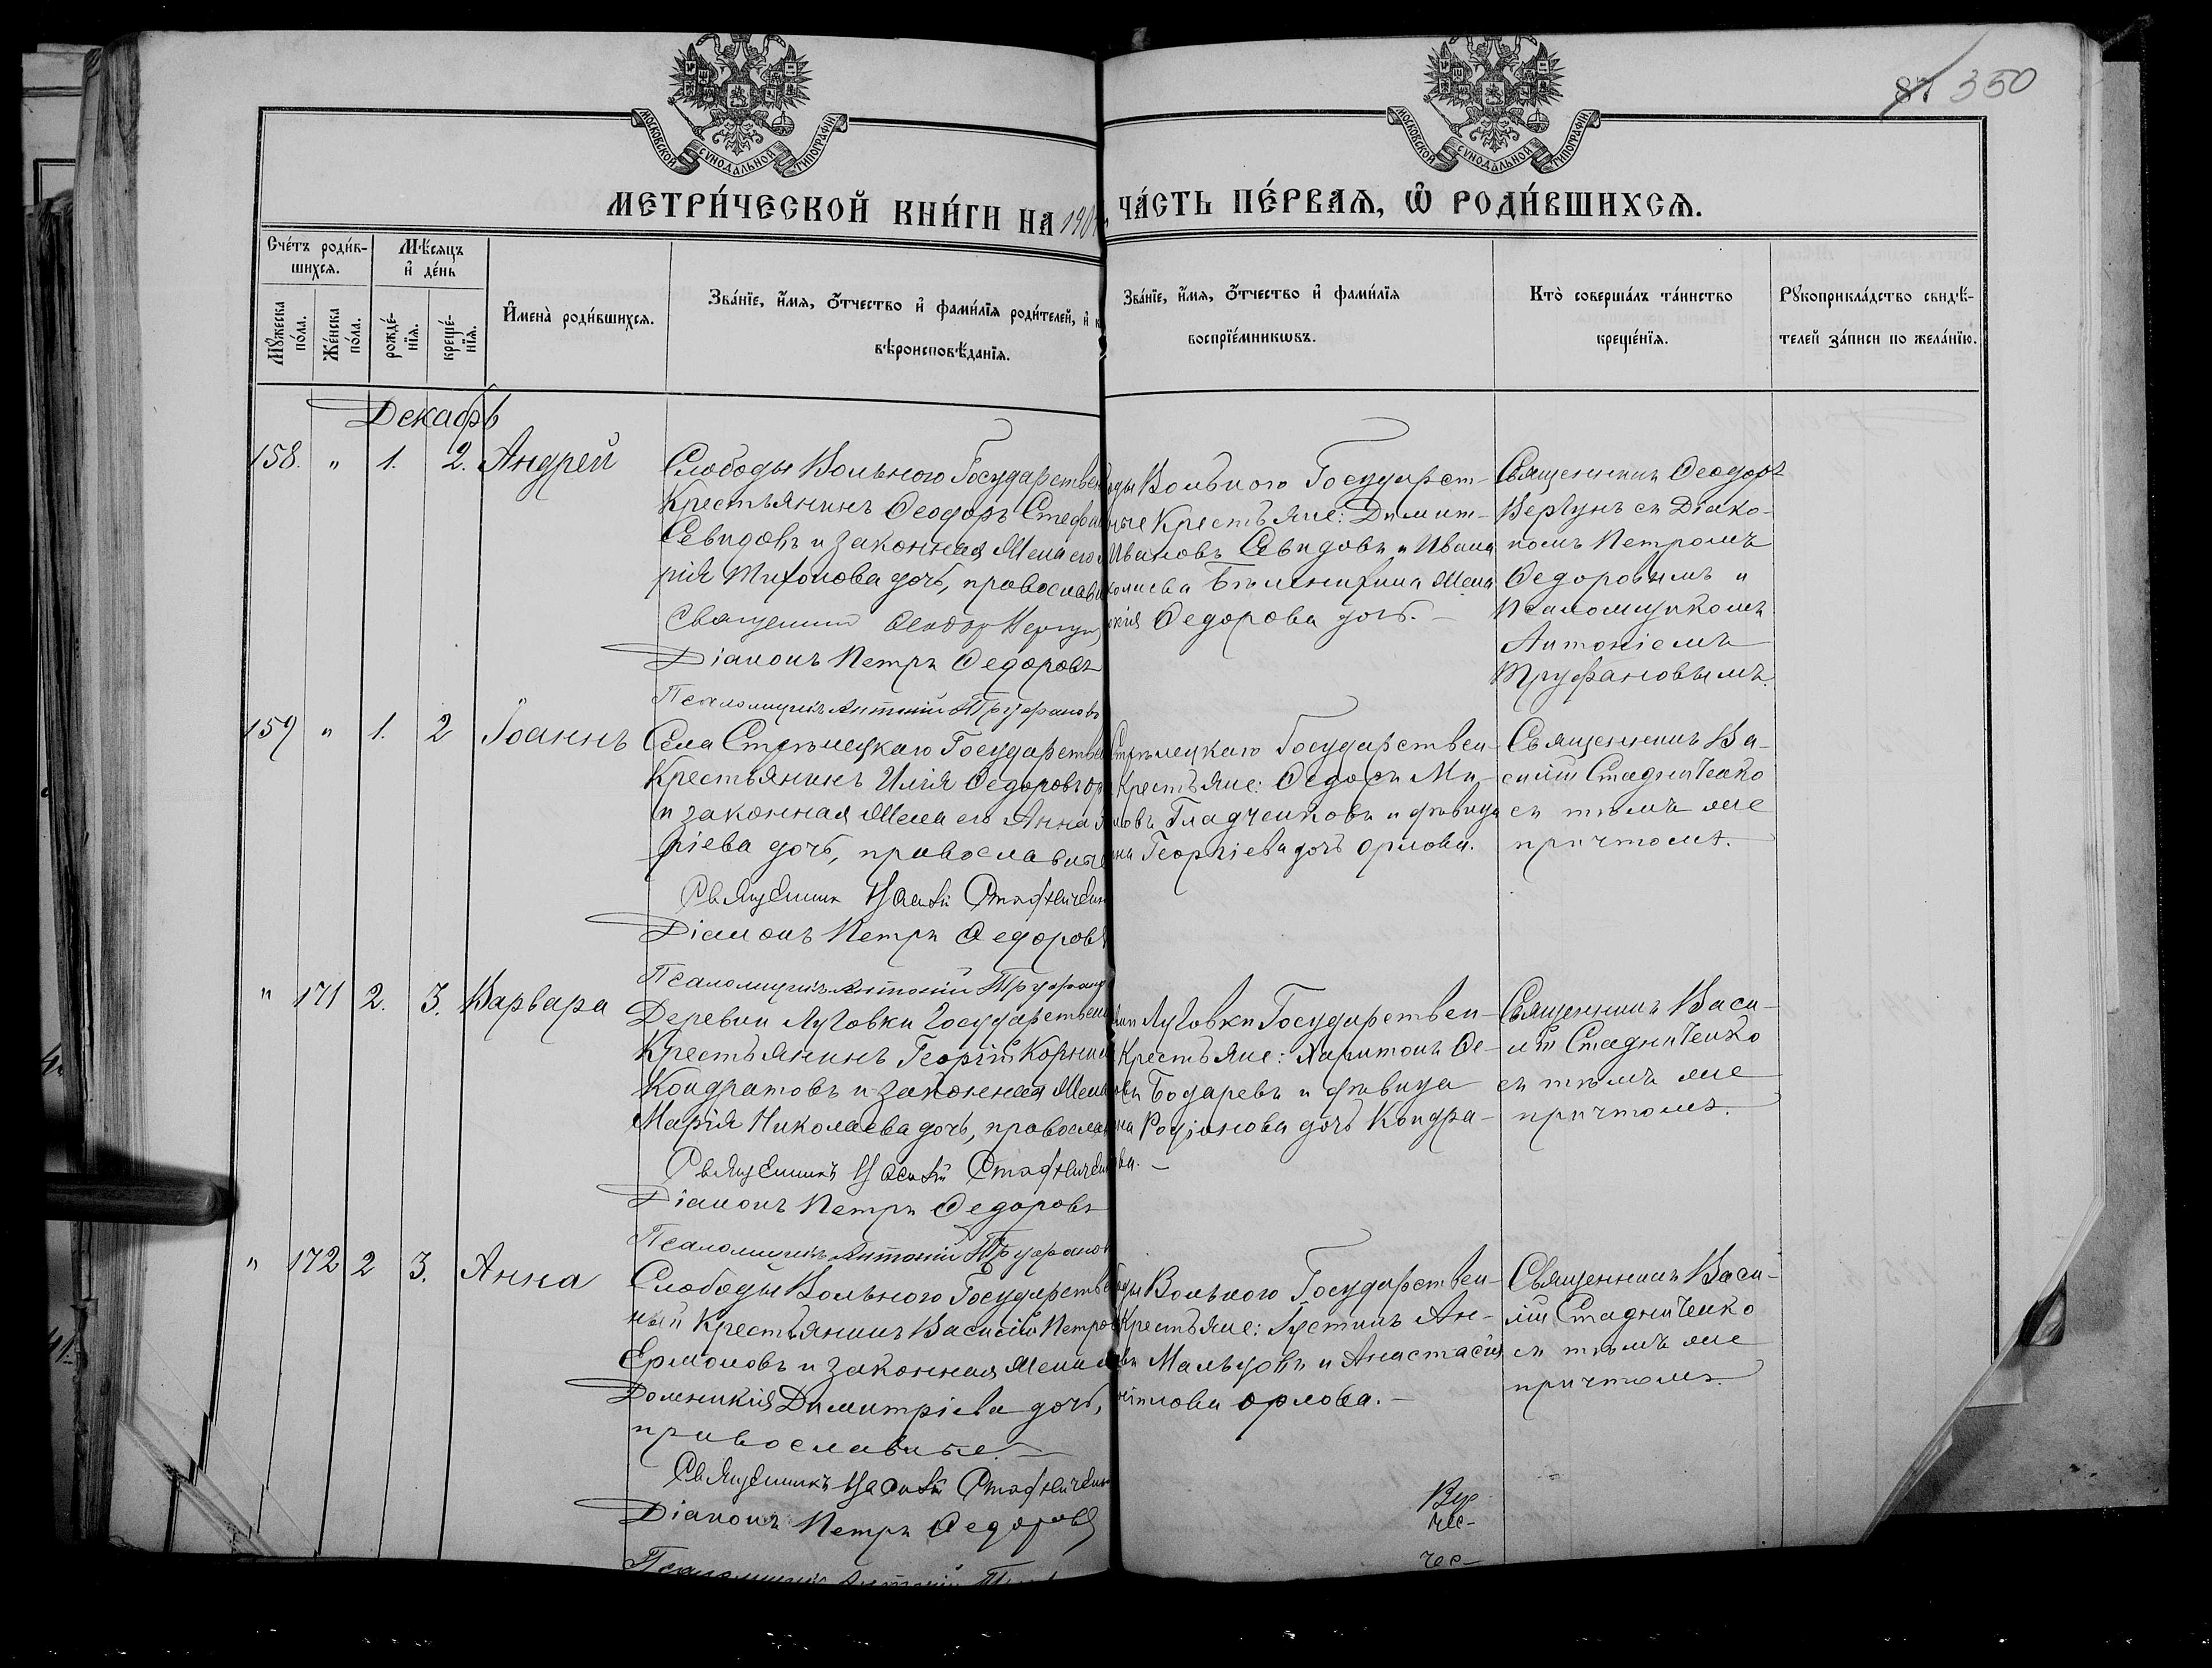 87. 350
МОСКОВСКОЙ СѴНОДАЛЬНОЙ ТИПОГРАФІИ
МОСКОВСКОЙ СѴНОДАЛЬНОЙ ТИПОГРАФІИ
МЕТРИ́ЧЕСКОЙ КНИ́ГИ НА 190
ЧА́СТЬ ПЕ́РВАѦ, Ѡ РОДИ́ВШИХСѦ.
Сче́тъ роди́в-
шихсѧ.
Мѣ́сѧцъ
и҆ де́нь
Мꙋ́жеска по́ла.
Же́нска по́ла.
рожде́-
нїѧ.
креще́-
нїѧ.
И҆мена̀ роди́вшихсѧ.
Зва́нїе, и҆́мѧ, ѻ҆́тчество и҆ фами́лїѧ роди́телей, и҆ к
вѣроисповѣ́данїѧ.
Зва́нїе, и҆́мѧ, ѻ҆́тчество и҆ фами́лїѧ
воспрїе́мникѡвъ.
Кто̀ соверша́лъ та́инство
креще́нїѧ.
Рꙋкоприкла́дство свидѣ́-
телей за́писи по жела́нїю.
Декабрь
158. " 1. 2. Андрей
Слободы Вольного Государствен
Крестьянинъ Ѳеодоръ Стефан
Севидовъ и законная жена его
рія Тихонова дочь, православн
Священникъ Ѳеодоръ Вергунъ
Діаконъ Петръ Ѳедоровъ
Псаломщикъ Антоній Труфановъ
оды Вольного Государст-
ные Крестьяне: Димит-
Ивановъ Севидовъ и Ивана
жена
кія Ѳедорова дочь. –
Священникъ Ѳеодоръ
Вергунъ съ Діако-
номъ Петромъ
Ѳедоровымъ и
Псаломщикомъ
Антоніемъ
Труфановымъ.
159 " 1. 2 Іоаннъ
Села Стрѣлецкаго Государствен
Крестьянинъ Илія Ѳедоровъ Ор
и законная жена его Анна
ріева дочь, православные
Священникъ Василій Стадниченко
Діаконъ Петръ Ѳедоровъ
Псаломщикъ Антоній Труфанов
Стрѣлецкаго Государствен-
Крестьяне: Ѳедосъ Ми-
ловъ Гладченковъ и дѣвица
на Георгіева дочь Орлова.
Священникъ Ва-
силій Стадниченко
съ тѣмъ же
причтомъ.
" 171 2. 3. Варвара
Деревни Луговки Государствен
Крестьянинъ Георгій Корнил
Кондратовъ и законная жена
Марія Николаева дочь, правосла
Священникъ Василій Стадниченко
Діаконъ Петръ Ѳедоровъ
Псаломщикъ Антоній Труфанов
вни Луговки Государствен-
Крестьяне: Харитонъ Ѳе-
овъ Бодаревъ и дѣвица
на Родіонова дочь Кондра-
ва. –
Священникъ Васи-
лій Стадниченко
съ тѣмъ же
причтомъ.
" 172 2 3. Анна
Слободы Вольного Государстве
ный Крестьянинъ Василій Петров
Ермоловъ и законная жена
Домникія Димитріева дочь,
православные. –
Священникъ Василій Стадниченко
Діаконъ Петръ Ѳедоровъ
Псаломщикъ Антоній
оды Вольного Государствен-
Крестьяне: Іустинъ Ан-
въ Мальцовъ и Анастасія
Орлова. –
Священникъ Васи-
лій Стадниченко
съ тѣмъ же
причтомъ.